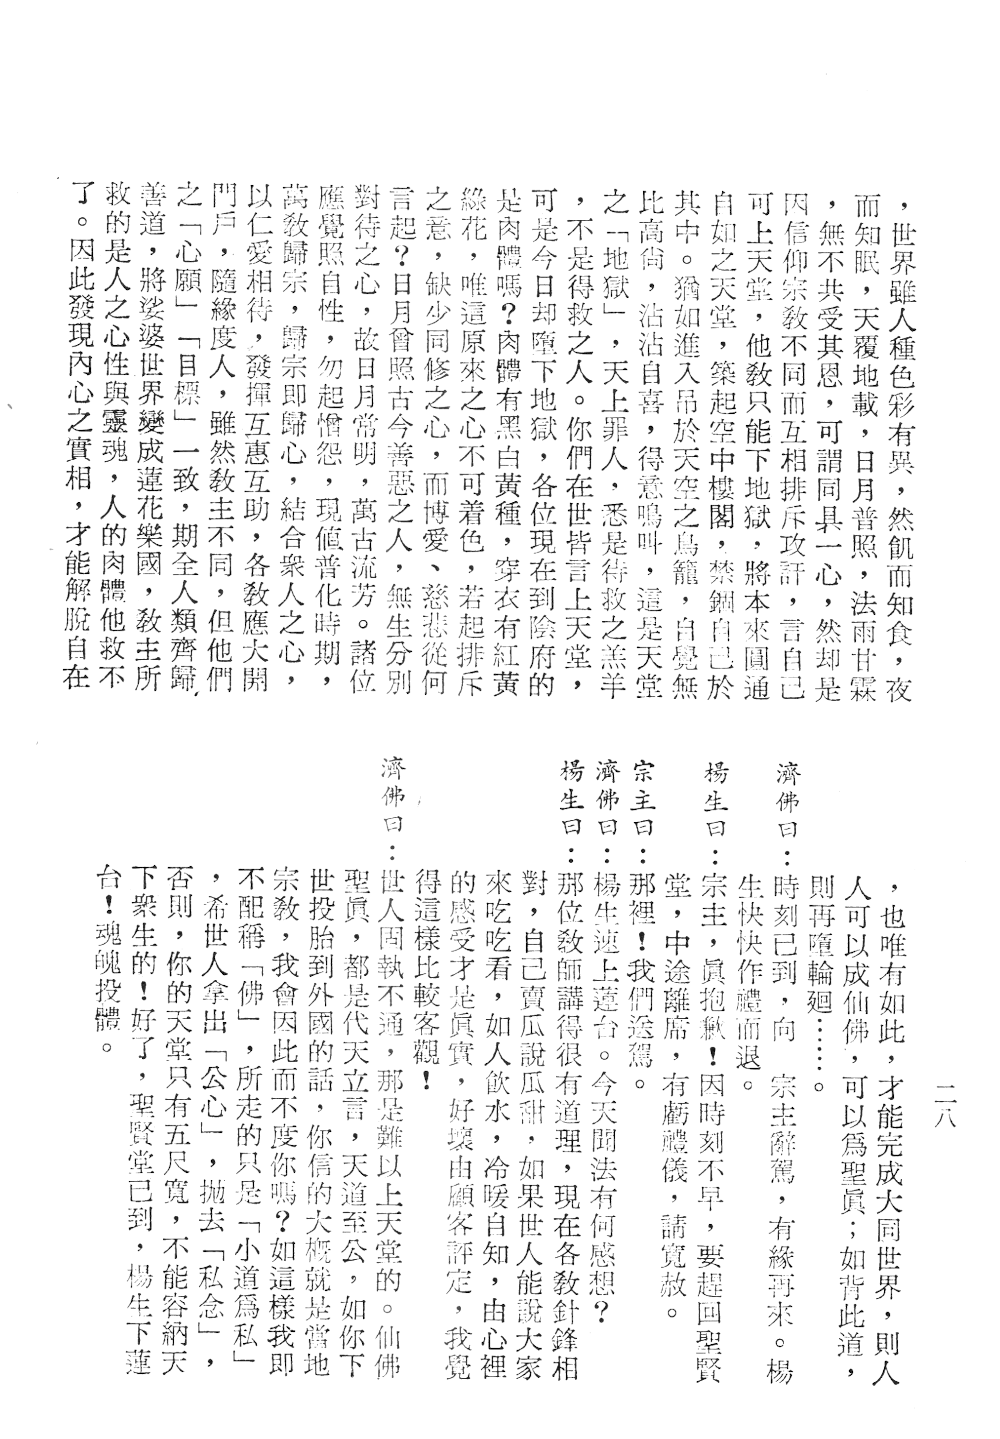 ，世界雖人種色彩有異，然飢而知食，夜
而知眠，天覆地載，日月普照，法雨甘霖
，無不共受其恩，可謂同具一心，然却是
因信仰宗教不同而互相排斥攻訐，言自己
可上天堂，他教只能下地獄，將本來圓通
自如之天堂，築起空中樓閣，禁錮自己於
其中。猶如進入吊於天空之鳥籠，自覺無
比高尙，沾沾自喜，得意鳴叫，這是天堂
之「地獄」，天上罪人，悉是待救之羔羊
，不是得救之人。你們在世皆言上天堂，
可是今日却墮下地獄，各位現在到陰府的
是肉體嗎？肉體有黑白黃種，穿衣有紅黃
綠花，唯這原來之心不可着色，若起排斥
之意，缺少同修之心，而博愛、慈悲從何
言起？日月曾照古今善惡之人，無生分別
對待之心，故日月常明，萬古流芳。諸位
應覺照自性，勿起憎怨，現値普化時期，
萬教歸宗，歸宗即歸心，結合衆人之心，
以仁愛相待，發揮互惠互助，各教應大開
門戶，隨緣度人，雖然教主不同，但他們
之「心願」「目標」一致，期全人類齊歸
善道，將娑婆世界變成蓮花樂國，教主所
救的是人之心性與靈魂，人的肉體他救不
了。因此發現內心之實相，才能解脫自在
，也唯有如此，才能完成大同世界，則人
人可以成仙佛，可以爲聖眞；如背此道，
則再墮輪廻……。
濟佛曰：時刻已到，向　宗主辭駕，有緣再來。楊
生快快作禮而退。
楊生曰：宗主，眞抱歉！因時刻不早，要趕回聖賢
堂，中途離席，有虧禮儀，請寬赦。
宗主曰：那裡！我們送駕。
濟佛曰：楊生速上蓮台。今天聞法有何感想？
楊生曰：那位教師講得很有道理，現在各教針鋒相
對，自己賣瓜說瓜甜，如果世人能說大家
來吃吃看，如人飲水，冷暖自知，由心裡
的感受才是眞實，好壞由顧客評定，我覺
得這樣比較客觀！
濟佛曰：世人固執不通，那是難以上天堂的。仙佛
聖眞，都是代天立言，天道至公，如你下
世投胎到外國的話，你信的大概就是當地
宗教，我會因此而不度你嗎？如這樣我即
不配稱「佛」，所走的只是「小道爲私」
，希世人拿出「公心」，拋去「私念」，
否則，你的天堂只有五尺寬，不能容納天
下衆生的！好了，聖賢堂已到，楊生下蓮
台！魂魄投體。
二八